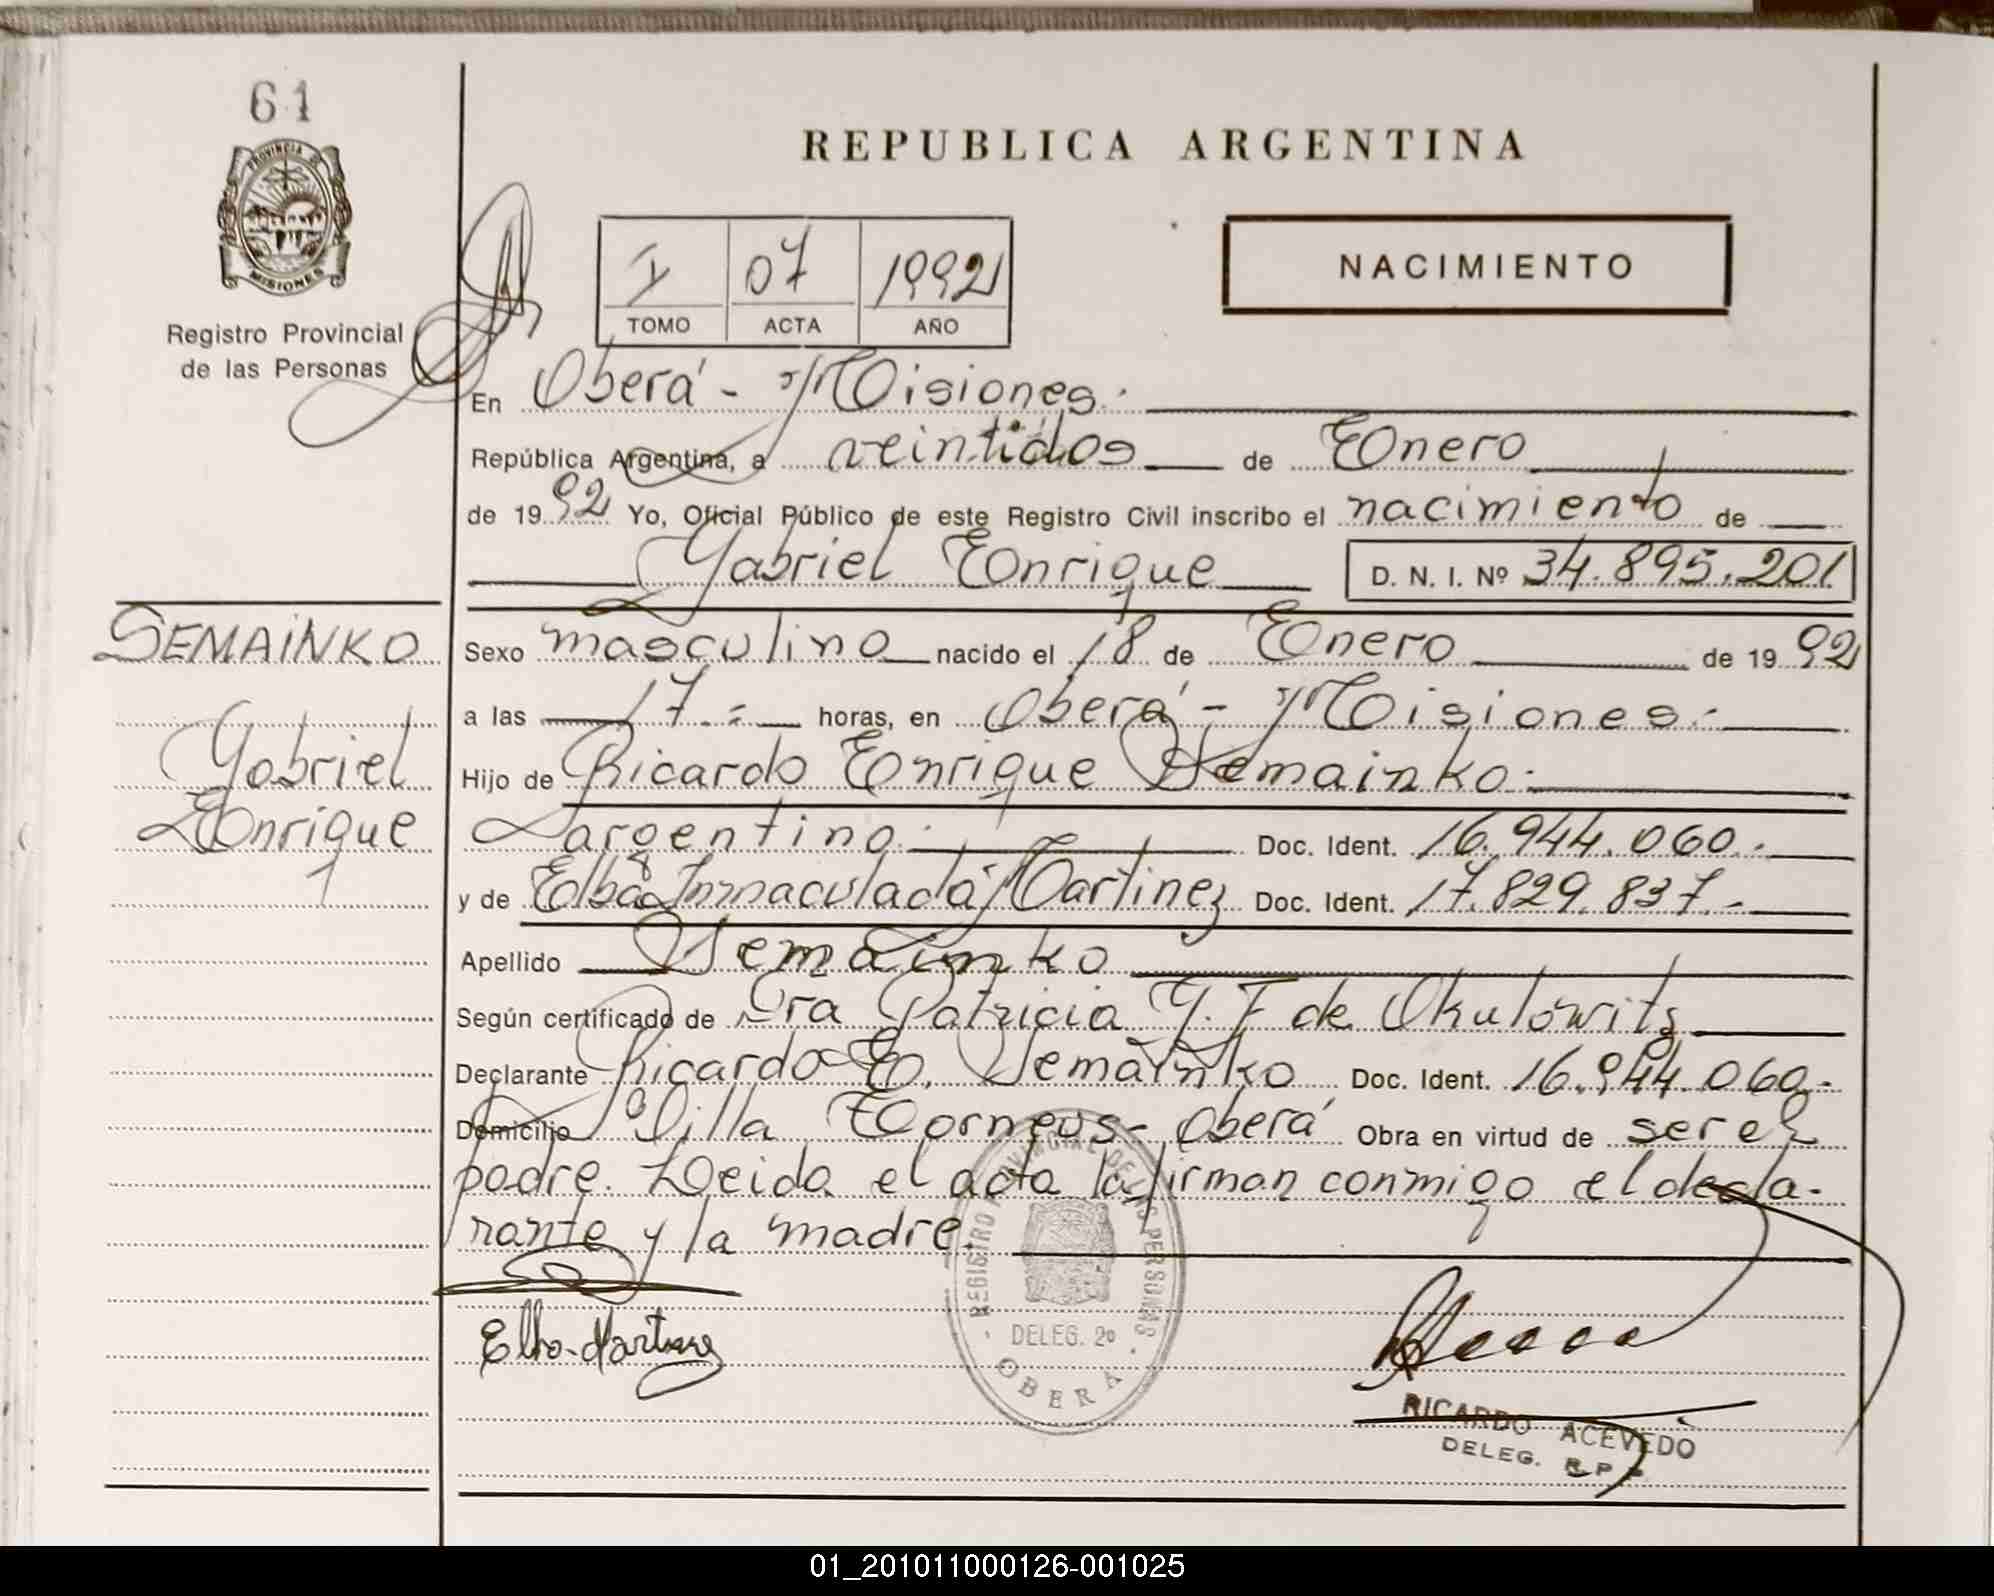 61
PROVINCIA DE
MISIONES
Registro Provincial
de las Personas
REPUBLICA ARGENTINA
I 07 1992
TOMO ACTA AÑO
NACIMIENTO
En Oberá - Misiones.
República Argentina, a veintidos de Enero
de 1992 Yo, Oficial Público de este Registro Civil inscribo el nacimiento de
Gabriel Enrique D. N. I. Nº 34.895.201
SEMAINKO
Gabriel
Enrique
Sexo masculino nacido el 18 de Enero de 1992
a las 17.= horas, en Oberá - Misiones.-
Hijo de Ricardo Enrique Semainko.
argentino. Doc. Ident. 16.944.060.-
y de Elba Inmaculada Martinez Doc. Ident. 17.829.837.-
Apellido Semainko
Según certificado de Dra Patricia de Okulowitz
Declarante Ricardo E. Semainko Doc. Ident. 16.944.060.-
Domicilio Villa Torneus - Oberá Obra en virtud de ser el
padre. Leida el acta la firman conmigo el decla-
rante y la madre.
REGISTRO PROVINCIAL DE LAS PERSONAS
DELEG. 2º
OBERA
Elba Martinez
RICARDO ACEVEDO
DELEG. R P
01_201011000126-001025